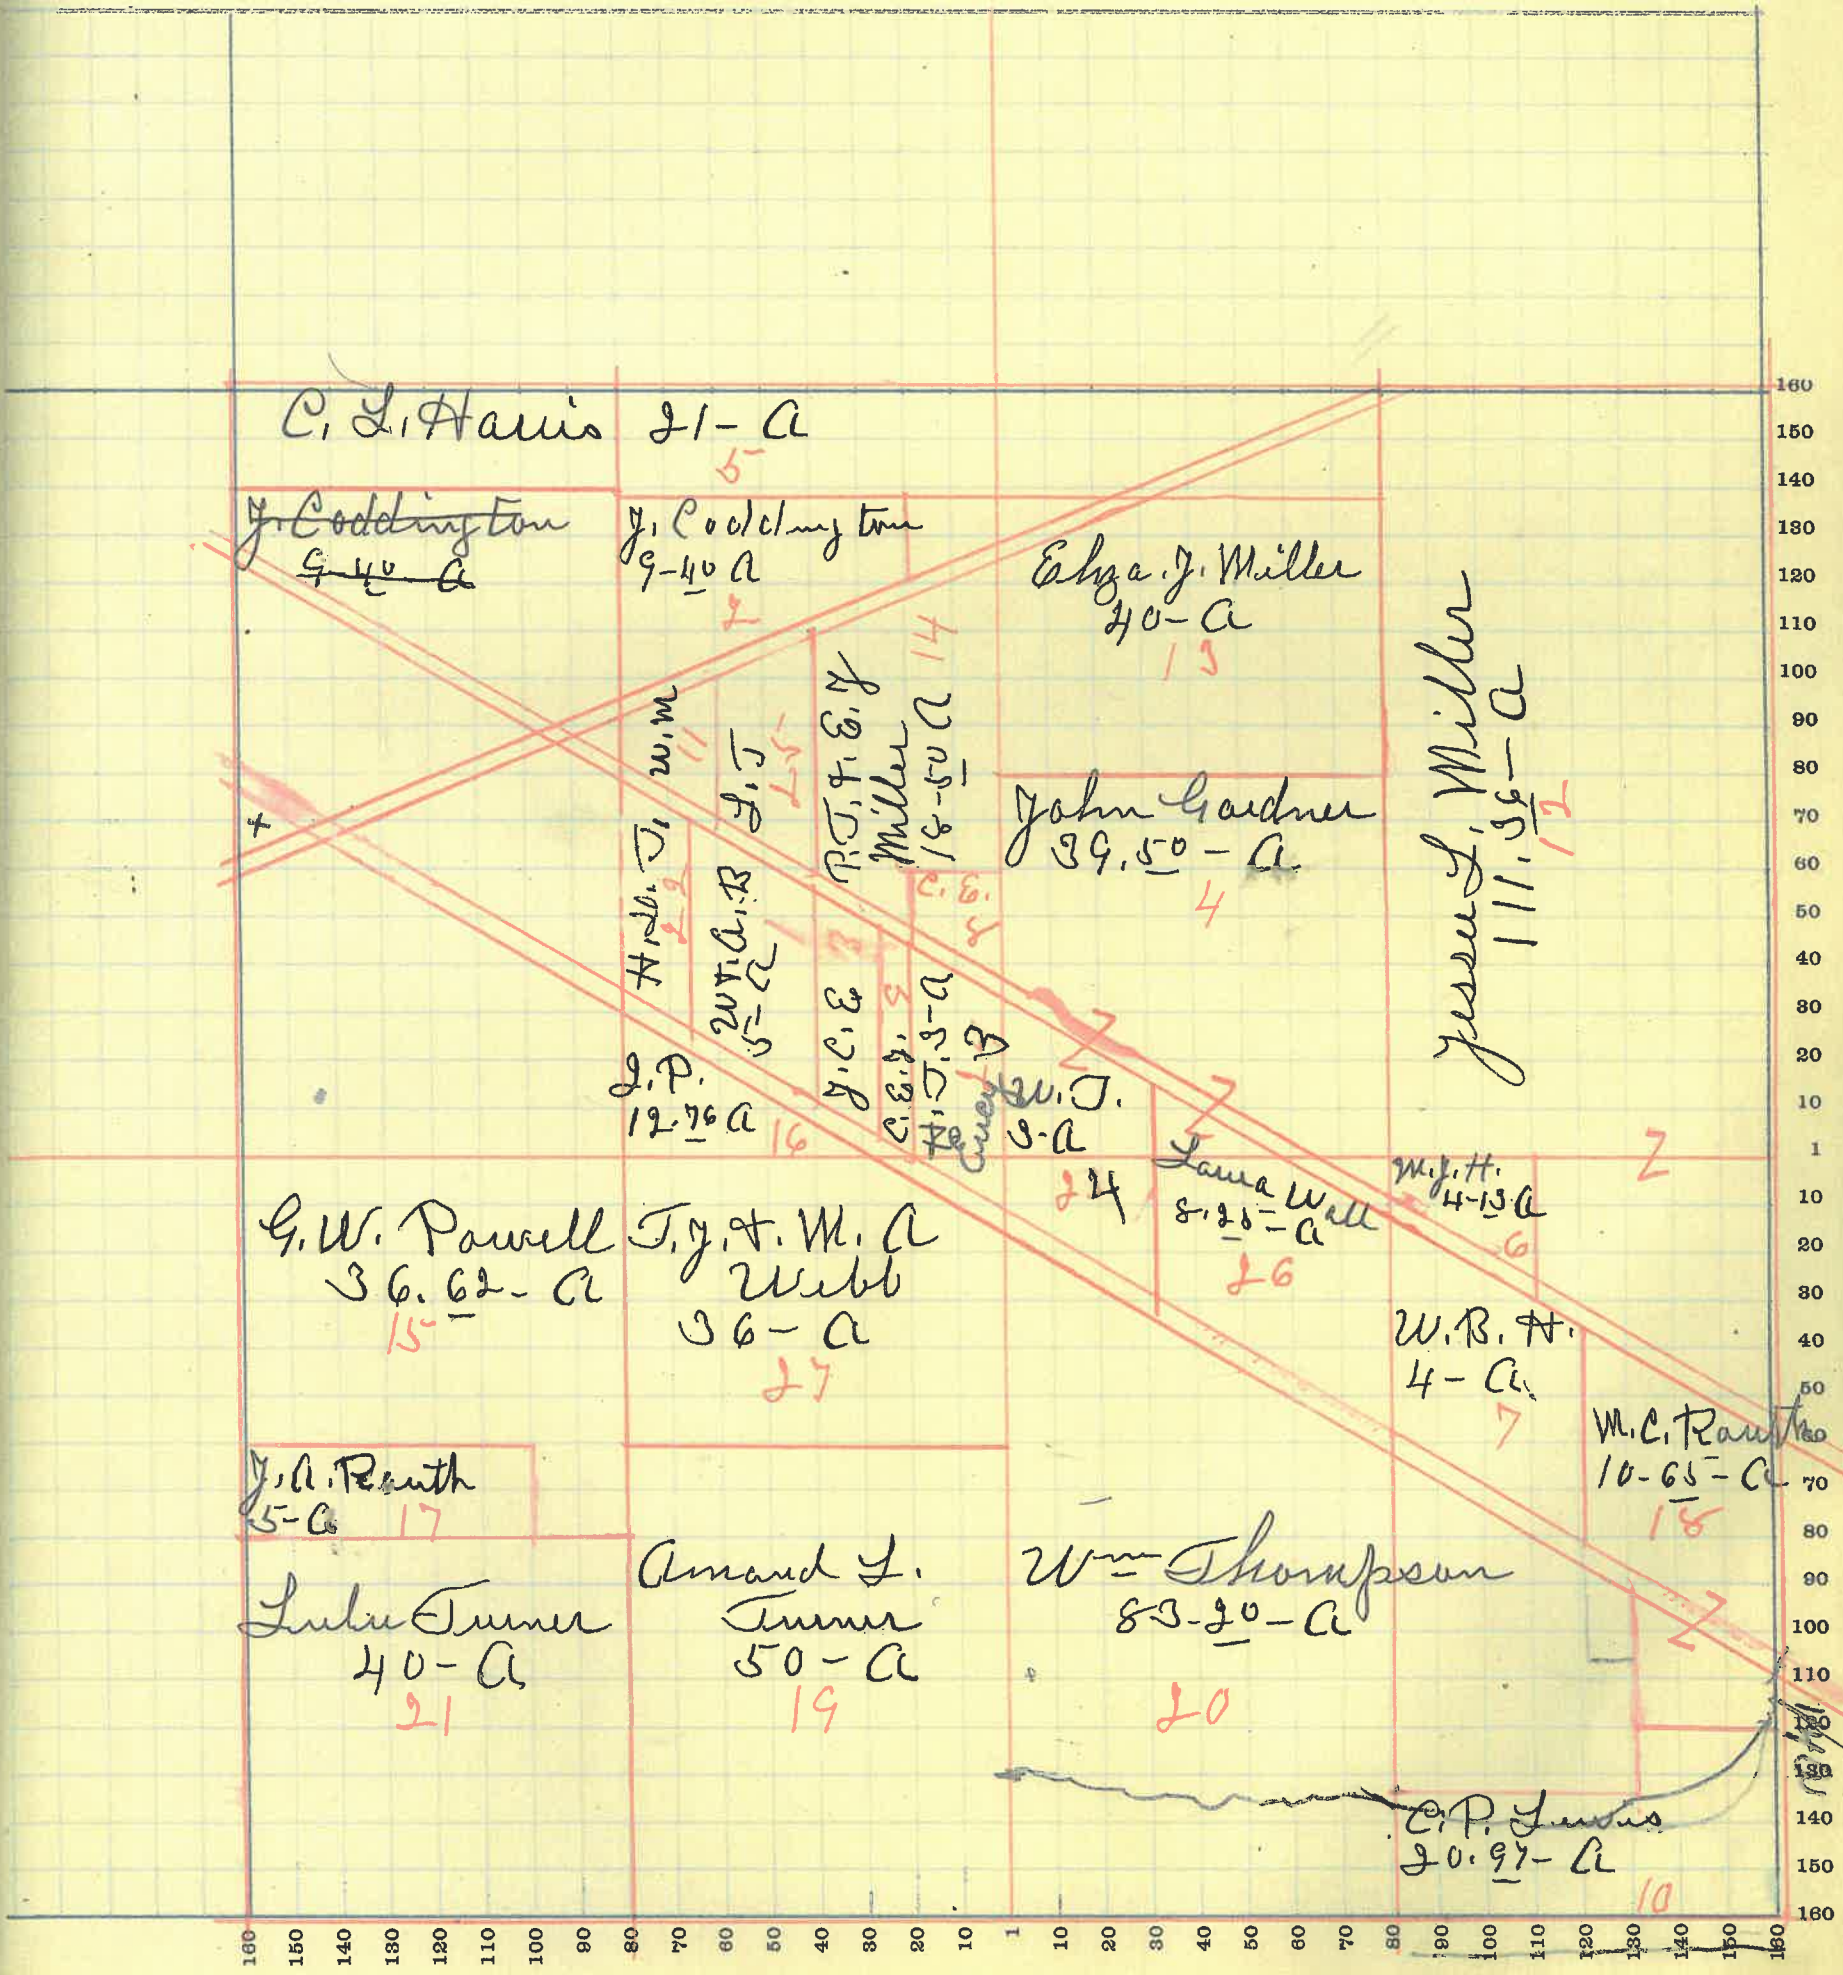 C. L. Harris 21- A
5
J. Coddington
9-40 A
J. Coddington
9-40 A
2
Eliza. J. Miller
40- A
13
Jesse L. Miller
111.36- A
12
H. H. T.
22
W. M
11
L. T
25
W. A. B
5- A
P. J. & E. J
Miller
18-50 A
14
John Gardner
39.50 - A.
4
C. E.
8
J. C. E
3
C. E. J.
9
T. 3- A
23
W. T.
3- A
24
J. P.
12.76 A
16
Z
Z
Z
Laura Wall
8.25- A
26
M. J. H.
4-13 A
6
G. W. Powell
36.62- A
15
T. J. & M. A
Webb
36- A
27
W. B. H.
4- A.
7
M. C. Routh
10-65- A
18
J. A. Routh
5- A
17
Lulu Turner
40- A
21
Amand L.
Turner
50- A
19
Wm Thompson
83-20- A
20
Z
C. P. Lewis
20.97- A
10
160
150
140
130
120
110
100
90
80
70
60
50
40
30
20
10
1
10
20
30
40
50
60
70
80
90
100
110
120
130
140
150
160
160 150 140 130 120 110 100 90 80 70 60 50 40 30 20 10 1 10 20 30 40 50 60 70 80 90 100 110 120 130 140 150 160